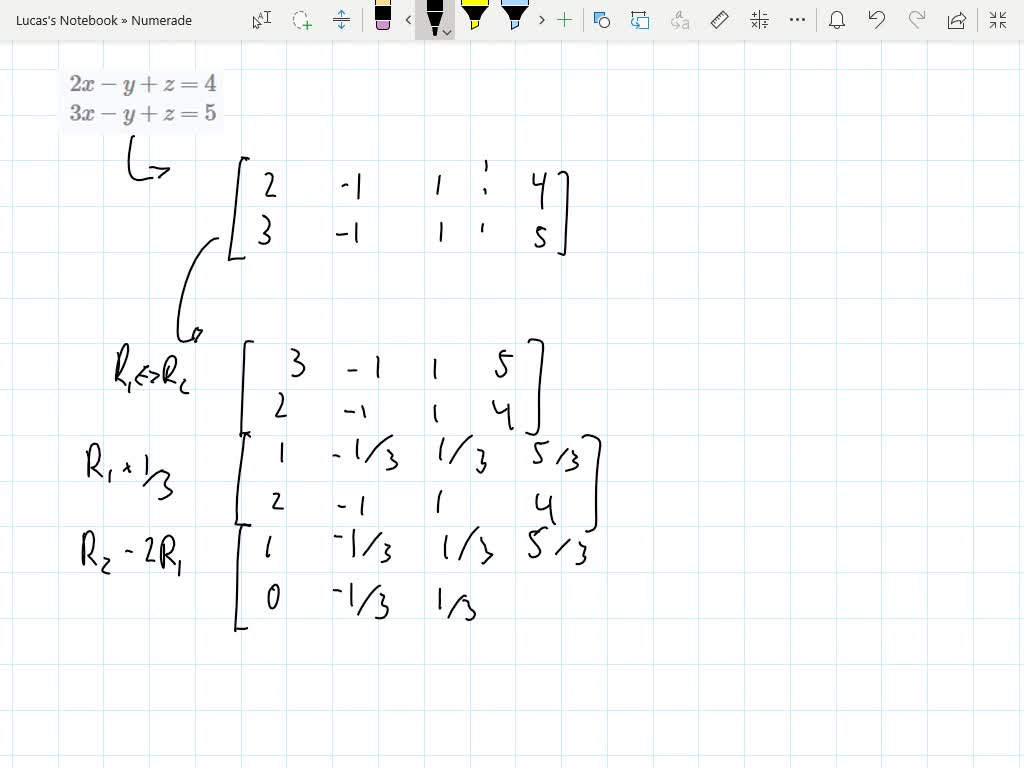 Lucas's Notebook » Numerade
2x − y + z = 4
3x − y + z = 5
2 -1 1 4
3 -1 1 5
R₁ <=> R₂
3 -1 1 5
2 -1 1 4
R₁ * 1/3
1 -1/3 1/3 5/3
2 -1 1 4
R₂ - 2R₁
1 -1/3 1/3 5/3
0 -1/3 1/3